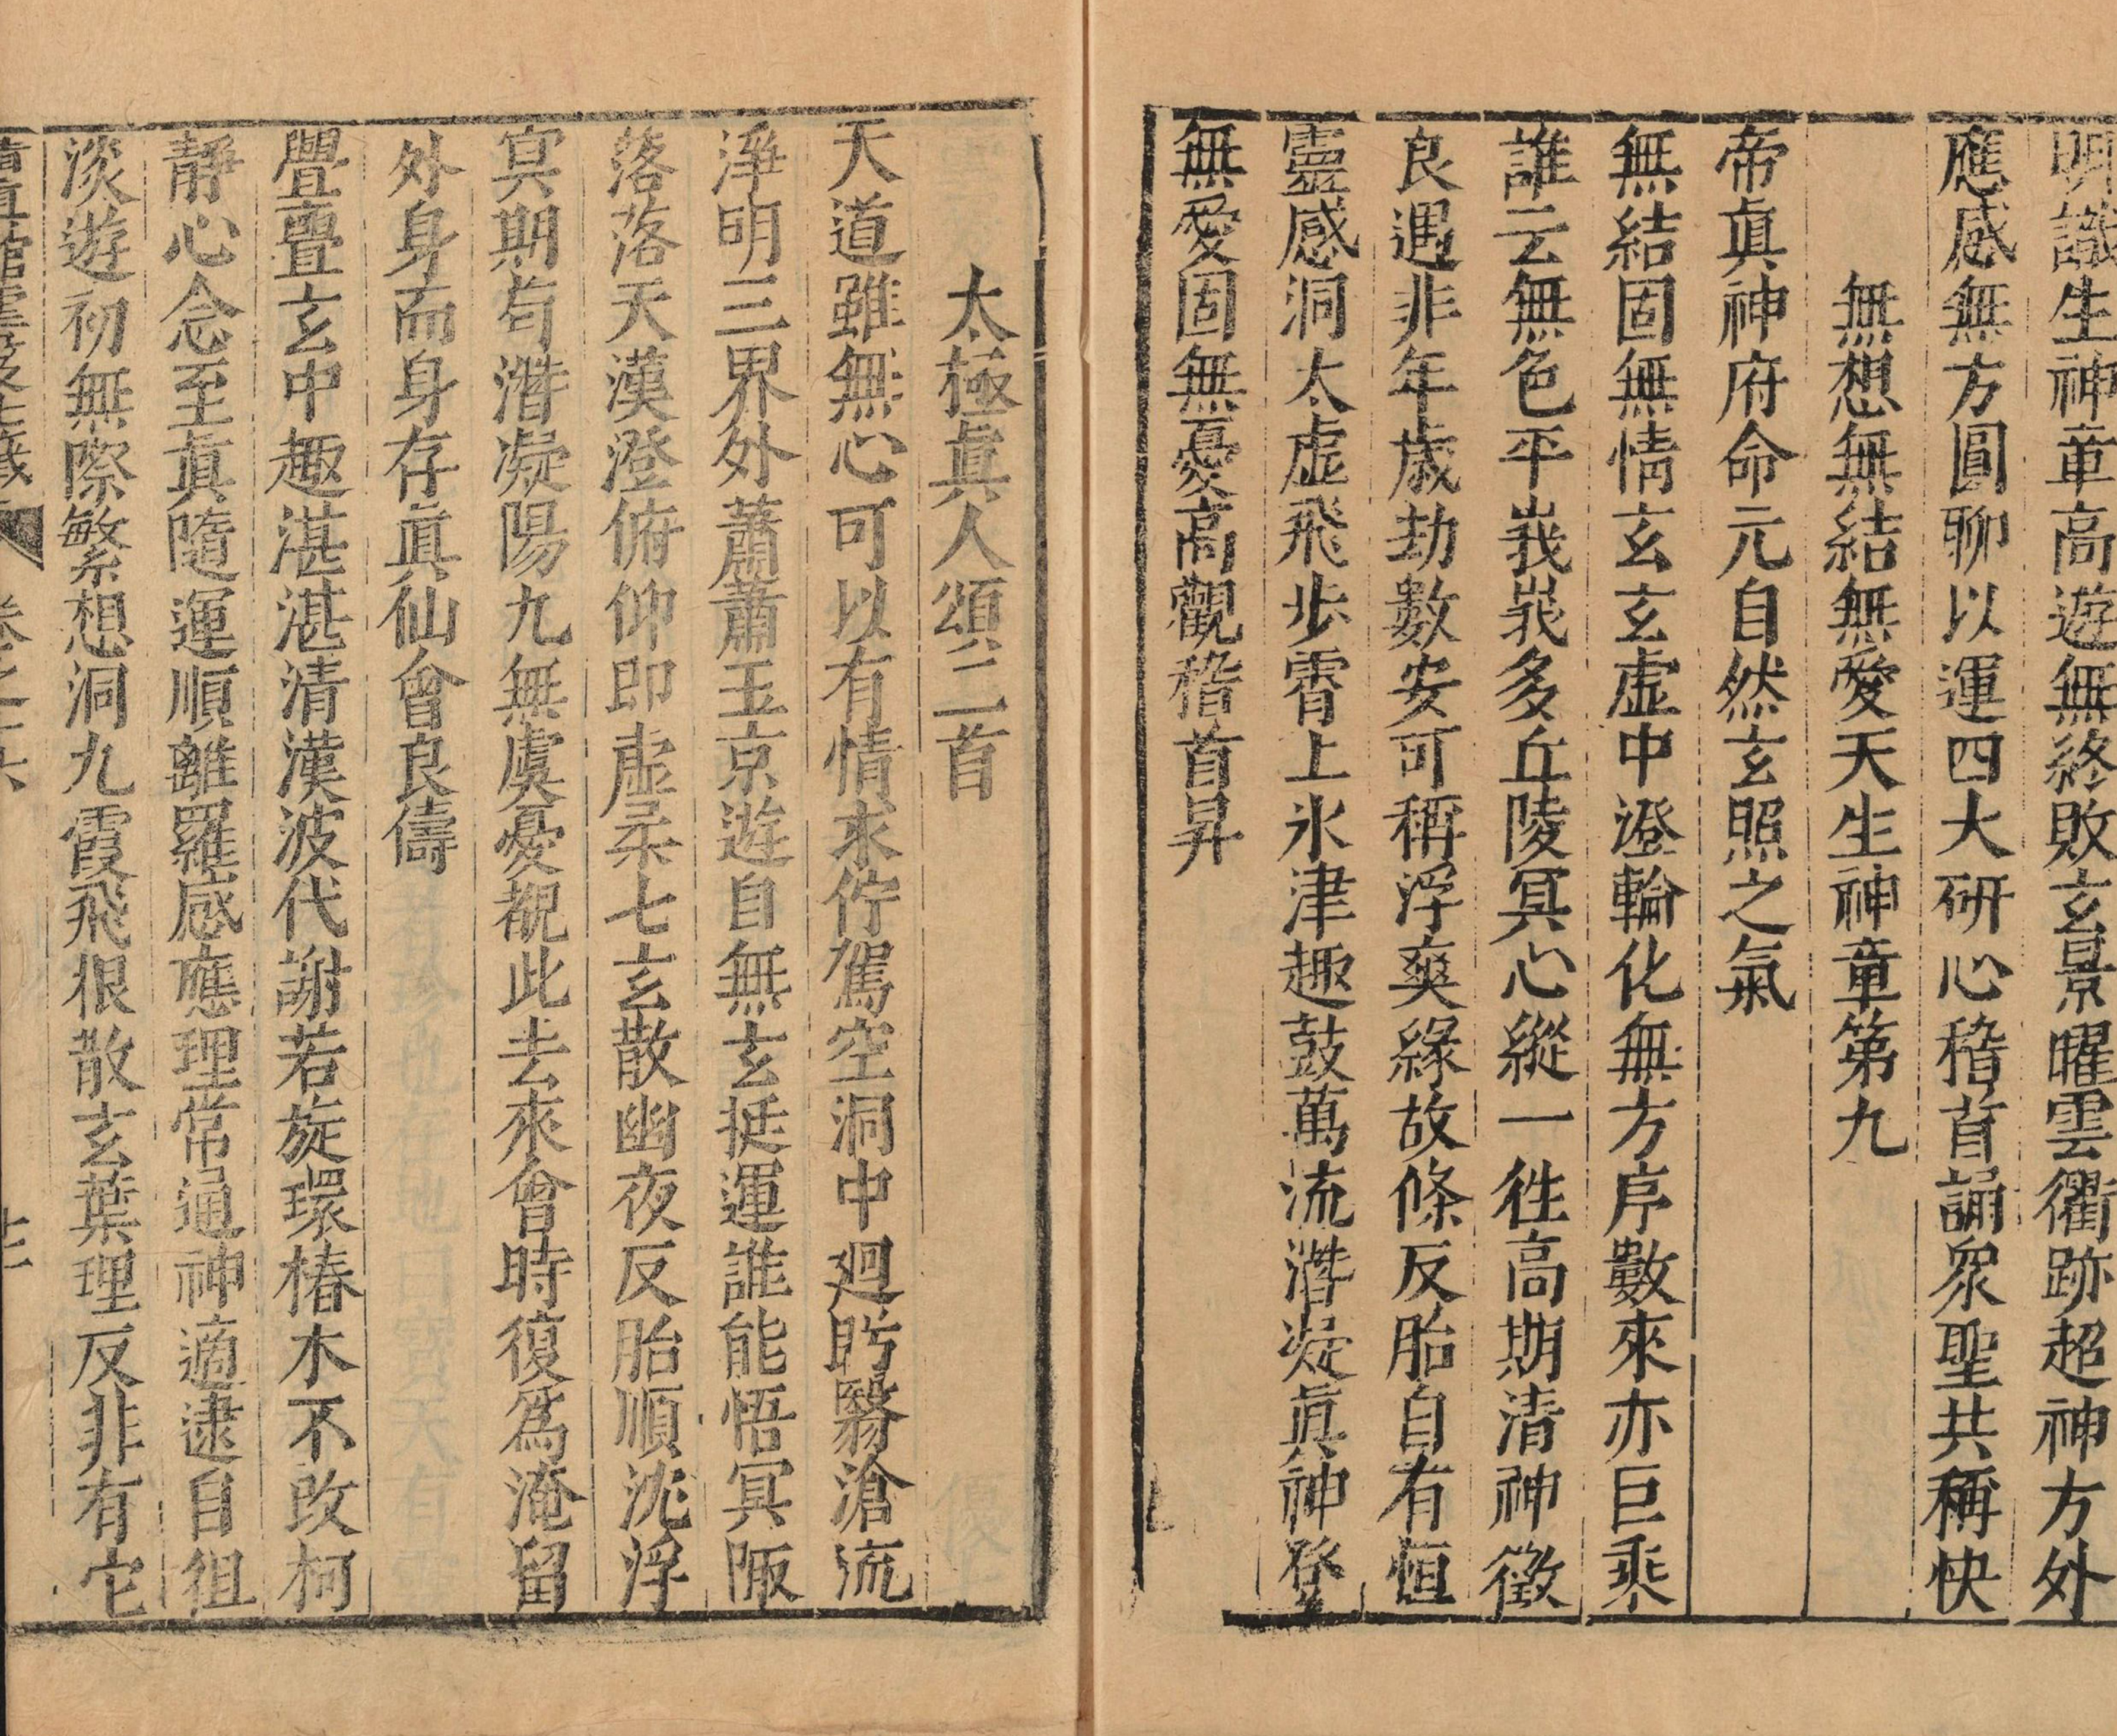 明識生神章高遊無終敗玄景曜雲衢跡超神方外
應感無方圓聊以運四大研心稽首誦眾聖共稱快
無想無結無愛天生神章第九
帝眞神府命元自然玄照之氣
無結固無情玄玄虛中澄輪化無方序數來亦巨乘
誰云無色平峩峩多丘陵冥心縱一徃高期清神徵
良遇非年歲劫數安可稱浮爽緣故條反胎自有恒
靈感洞太虛飛步霄上氷津趣鼓萬流潛凝眞神登
無愛固無憂高觀稽首昇
太極眞人頌二首
天道雖無心可以有情求佇駕空洞中廻盻翳滄流
淨明三界外蕭蕭玉京遊自無玄挺運誰能悟冥陬
落落天漢澄俯仰即虛柔七玄散幽夜反胎順沉浮
冥期茍潛凝陽九無虞憂覩此去來會時復為淹留
外身而身存眞仙會良儔
亹亹玄中趣湛湛清漢波代謝若旋環椿木不改柯
靜心念至眞隨運順離羅感應理常通神適逮自徂
淡遊初無際繁想洞九霞飛根散玄葉理反非有它
卷之十六